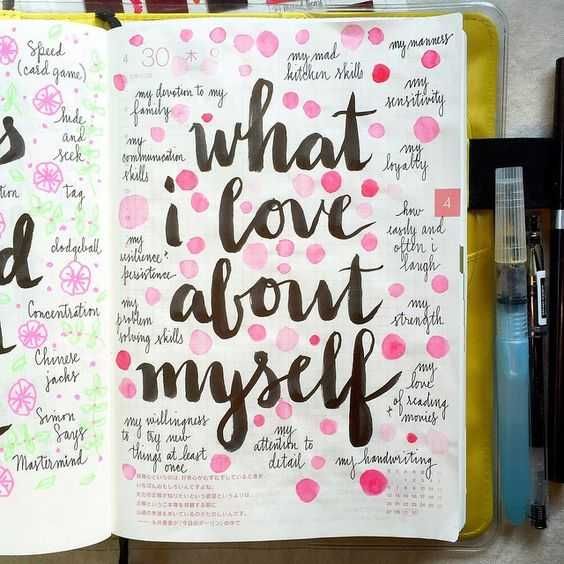 Speed
(card game)
hide
and
seek
tag
dodgeball
Concentration
Chinese
jacks
Simon
Says
Mastermind
4
30 木
what
i love
about
myself
my mad
kitchen skills
my manners
my devotion to my
family
my
sensitivity
my
communication
skills
my
loyalty
how
easily and
often i
laugh
my
resilience +
persistence
my
strength
my
problem
solving skills
my
love
of reading
+ movies
my willingness
to try new
things at least
once
my
attention to
detail
my handwriting
4